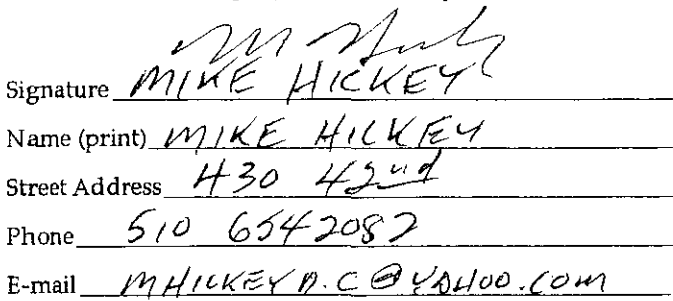 Signature MIKE HICKEY
Name (print) MIKE HICKEY
Street Address 430 42nd
Phone 510 6542082
E-mail MHICKEYD.C@YAHOO.COM